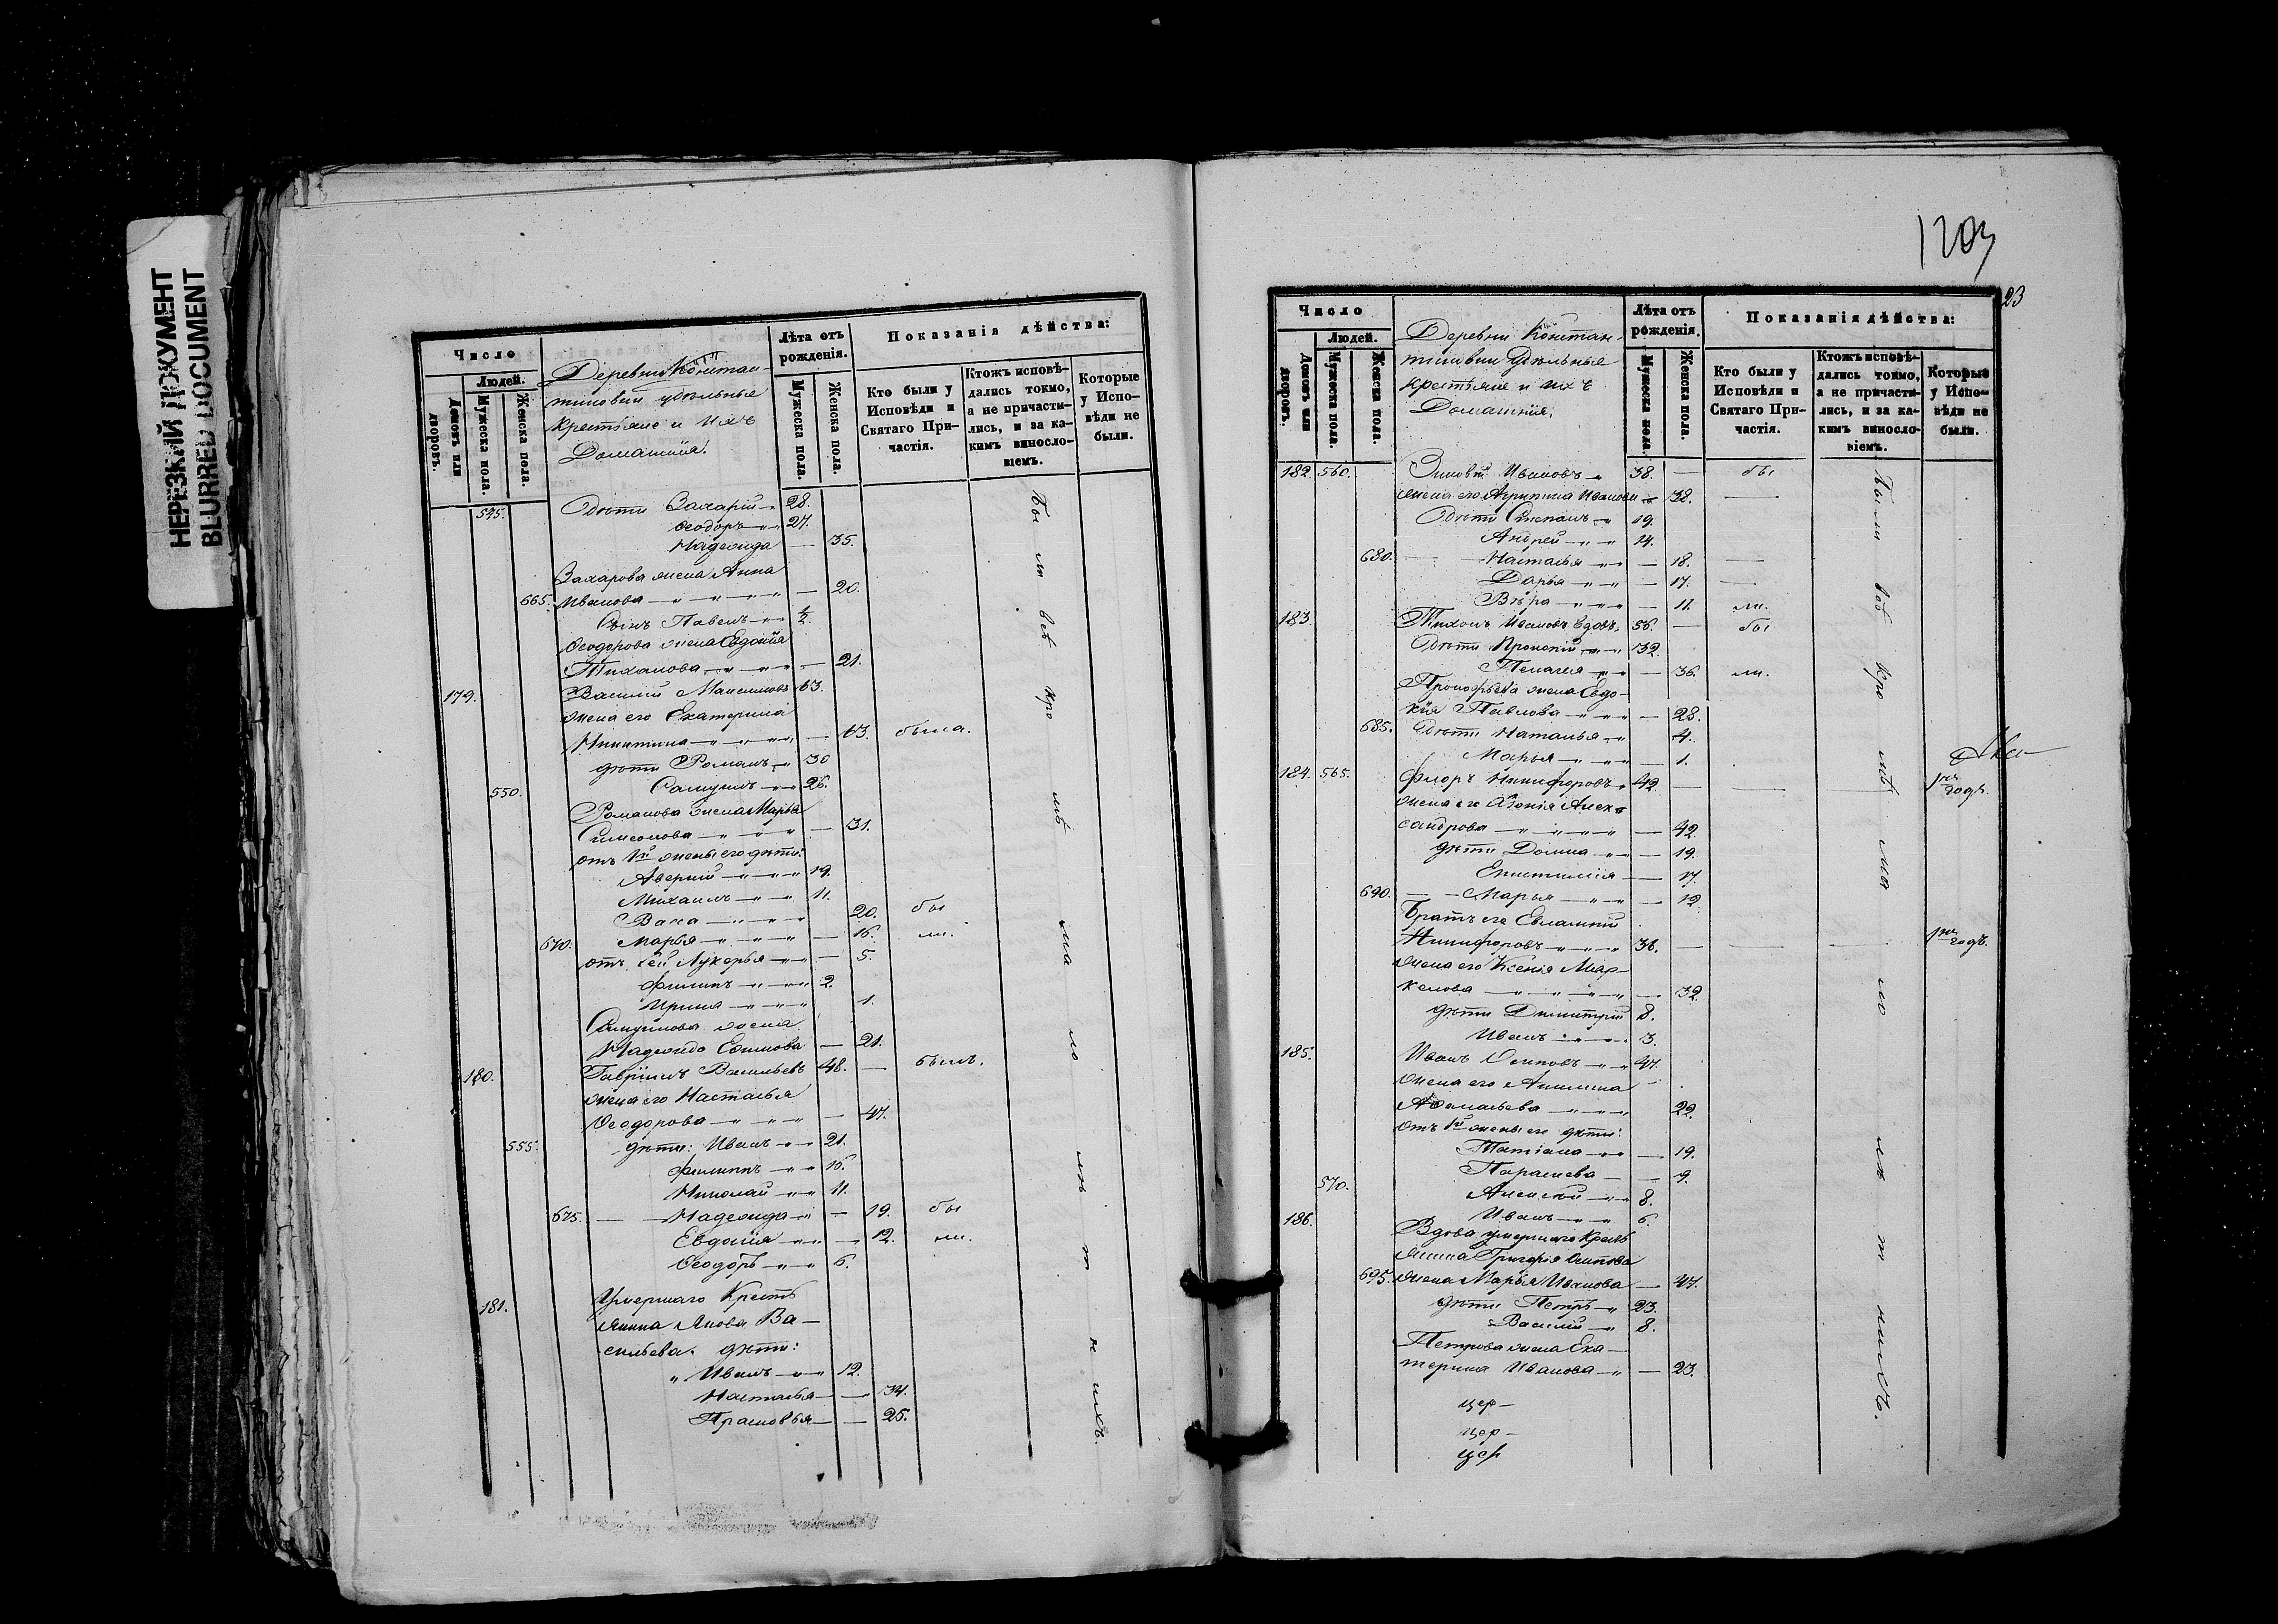 НЕРЕЗКИЙ ДОКУМЕНТ
BLURRED DOCUMENT
Число
Людей.
Домовъ или дворовъ.
Мужеска пола.
Женска пола.
Деревни Констан-
тиновки удѣльные
крестьяне и ихъ
Домашнiя.
Лѣта отъ рожденія.
Мужеска пола.
Женска пола.
Показанія дѣйства:
Кто были у Исповѣди и Святаго При-частія.
Ктожъ исповѣ-дались токмо, а не причасти-лись, и за ка-кимъ винослo-віемъ.
Которые у Испо-вѣди не были.
545. Дѣти Захарій 28.
Ѳеодоръ 27.
Надежда — 35.
Захарова жена Анна
665. Иванова — 20.
Сынъ Павелъ 1/2.
Ѳеодорова жена Евдокія
Тиханова — 21.
179. Василій Максимовъ 63.
жена его Екатерина
Никитина — 63. была.
дѣти Романъ 30
550. Самуилъ 26.
Романова жена Марья
Симеонова — 31.
отъ 1й жены его дѣти:
Аверкій 19.
Михаилъ 11.
Васса 20. бы
670. Марья — 16. ли.
отъ сей Лукерья — 5.
Филипъ 2.
Ирина 1.
Самуилова жена
Надежда Ефимова — 21.
180. Гавріилъ Васильевъ 48. — былъ.
жена его Настасья
Ѳеодорова — 47.
555. дѣти: Иванъ 21.
Филиппъ 16.
Николай 11.
675. — Надежда — 19. бы
Евдокія — 12. ли.
Ѳеодоръ 6.
181. Умершаго Кресть
янина Якова Ва-
сильева. дѣти:
Иванъ 12.
Настасья — 34.
Прасковья — 25.
Бы ли всѣ кро мѣ ма ло лѣ т н ихъ.
1203
23
Число
Людей.
Домовъ или дворовъ.
Мужеска пола.
Женска пола.
Деревни Констан-
тиновки Удѣльные
крестьяне и ихъ
Домашнія.
Лѣта отъ рожденія.
Мужеска пола.
Женска пола.
Показанія дѣйства:
Кто были у Исповѣди и Святаго При-частія.
Ктожъ исповѣ-дались токмо, а не причасти-лись, и за ка-кимъ винослo-віемъ.
Которые у Испо-вѣди не были.
182. 560. Зиновій Ивановъ 38. — бы
жена его Агрипина Иванова 38. —
Дѣти Степанъ 19.
Андрей 14.
680. — Настасья — 18. —
Дарья — 17. —
Вѣра — 11. ли.
183. Тихонъ Ивановъ вдовъ 56. — бы
Дѣти 32.
Пелагея — 36. ли.
Прокофьева жена Евдо-
кія Павлова — 28.
685. Дѣти Наталья 4.
Марья — 1.
184. 565. Флоръ Никифоровъ 42. — — 1й годъ.
жена его Алек-
сандрова — 42.
дѣти Домна — 19.
Епистимія — 17.
690. — Марья — 12
Братъ его Евлампій
Никифоровъ 38. — — — 1й годъ.
жена его Ксенія Мар-
келова — 32.
дѣти Димитрій 8.
Иванъ 3.
185. Иванъ Осиповъ 47.
жена его Акилина
Аѳанасьева 22.
отъ 1й жены его дѣти:
Татіана — 19.
Параскева — 9.
570. Алексѣй 8.
Иванъ 6.
186. Вдова умершаго Кресть
янина Григорія Осипова
695. жена Марья Иванова — 47.
дѣти Петръ 23.
Василій 8.
Петрова жена Ека-
терина Иванова — 23.
цер-
цер-
цер
Были всѣ кро мѣ ма ло лѣ т нихъ.